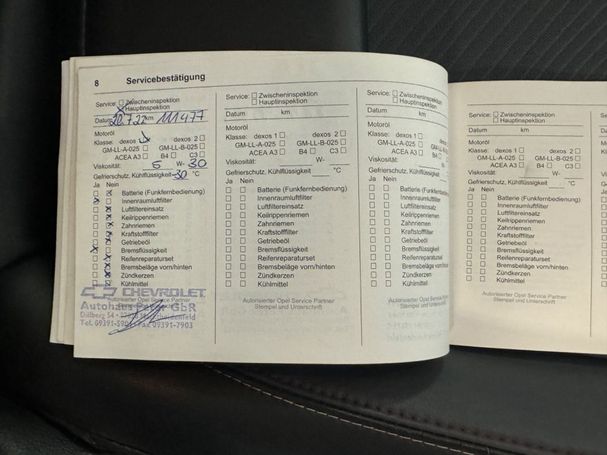 8 Servicebestätigung
Service: Zwischeninspektion
Hauptinspektion
Datum 20.7.22 km 111477
Motoröl
Klasse: dexos 1 dexos 2
GM-LL-A-025 GM-LL-B-025
ACEA A3 B4 C3
Viskosität: 5 W- 30
Gefrierschutz, Kühlflüssigkeit -30 °C
Ja Nein
Batterie (Funkfernbedienung)
Innenraumluftfilter
Luftfiltereinsatz
Keilrippenriemen
Zahnriemen
Kraftstofffilter
Getriebeöl
Bremsflüssigkeit
Reifenreparaturset
Bremsbeläge vorn/hinten
Zündkerzen
Kühlmittel
CHEVROLET
Autorisierter Opel Service Partner
Autohaus GbR
Dillberg 54
Tel. 09391-5901 Fax 09391-7903
Service: Zwischeninspektion
Hauptinspektion
Datum km
Motoröl
Klasse: dexos 1 dexos 2
GM-LL-A-025 GM-LL-B-025
ACEA A3 B4 C3
Viskosität: W-
Gefrierschutz, Kühlflüssigkeit °C
Ja Nein
Batterie (Funkfernbedienung)
Innenraumluftfilter
Luftfiltereinsatz
Keilrippenriemen
Zahnriemen
Kraftstofffilter
Getriebeöl
Bremsflüssigkeit
Reifenreparaturset
Bremsbeläge vorn/hinten
Zündkerzen
Kühlmittel
Autorisierter Opel Service Partner
Stempel und Unterschrift
Service: Zwischeninspektion
Hauptinspektion
Datum km
Motoröl
Klasse: dexos 1
GM-LL-A-025
ACEA A3 B4
Viskosität:
Gefrierschutz, Kühlflüssigkeit
Ja Nein
Batterie
Innenraumluftfilter
Luftfiltereinsatz
Keilrippenriemen
Zahnriemen
Kraftstofffilter
Getriebeöl
Bremsflüssigkeit
Reifenreparaturset
Bremsbeläge
Zündkerzen
Kühlmittel
Autorisierter Opel Service
Stempel und Unterschrift
Service: Zwischeninspektion
Hauptinspektion
Datum km
Motoröl
Klasse: dexos 1 dexos 2
GM-LL-A-025 GM-LL-B-025
ACEA A3 B4 C3
Viskosität: W-
Gefrierschutz, Kühlflüssigkeit °C
Ja Nein
Batterie (Funkfernbedienung)
Innenraumluftfilter
Luftfiltereinsatz
Keilrippenriemen
Zahnriemen
Kraftstofffilter
Getriebeöl
Bremsflüssigkeit
Reifenreparaturset
Bremsbeläge vorn/hinten
Zündkerzen
Kühlmittel
Autorisierter Opel Service Partner
Stempel und Unterschrift